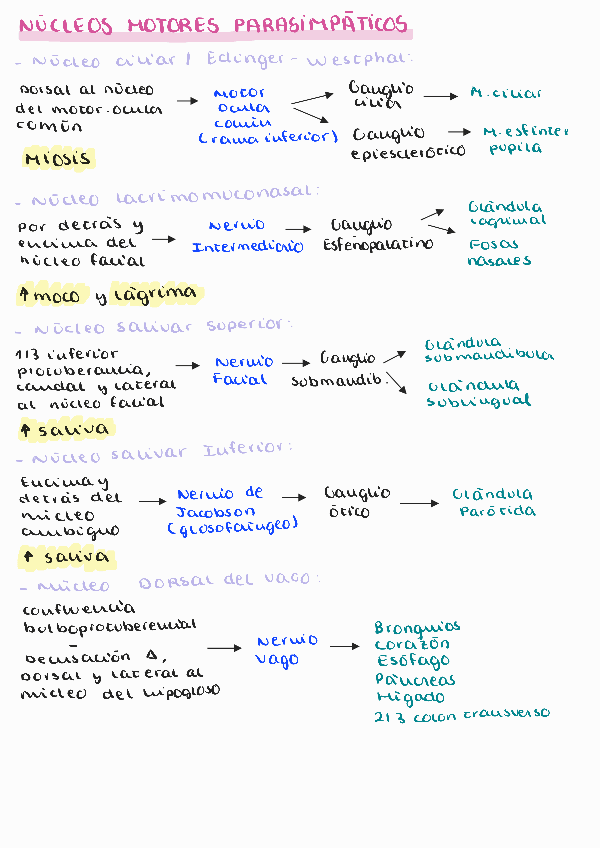 NÚCLEOS MOTORES PARASIMPÁTICOS
- Núcleo ciliar / Edinger - Westphal:
Dorsal al núcleo
del motor ocular
común
Motor
ocular
común
(rama inferior)
Ganglio
ciliar
M. ciliar
Ganglio
epiesclerótico
M. esfínter
pupila
Miosis
- Núcleo lacrimomuconasal:
Por detrás y
encima del
núcleo facial
Nervio
Intermediario
Ganglio
Esfenopalatino
Glándula
lagrimal
Fosas
nasales
↑ moco y lágrima
- Núcleo salivar superior:
1/3 inferior
protuberancia,
caudal y lateral
al núcleo facial
Nervio
Facial
Ganglio
submandib.
Glándula
submandibular
Glándula
sublingual
↑ saliva
- Núcleo salivar Inferior:
Encima y
detrás del
núcleo
ambiguo
Nervio de
Jacobson
(glosofaríngeo)
Ganglio
ótico
Glándula
Parótida
↑ saliva
- Núcleo Dorsal del vago:
Confluencia
bulboprotuberencial
Decusación Δ,
Dorsal y lateral al
núcleo del hipogloso
Nervio
Vago
Bronquios
Corazón
Esófago
Páncreas
Hígado
2/3 colon transverso